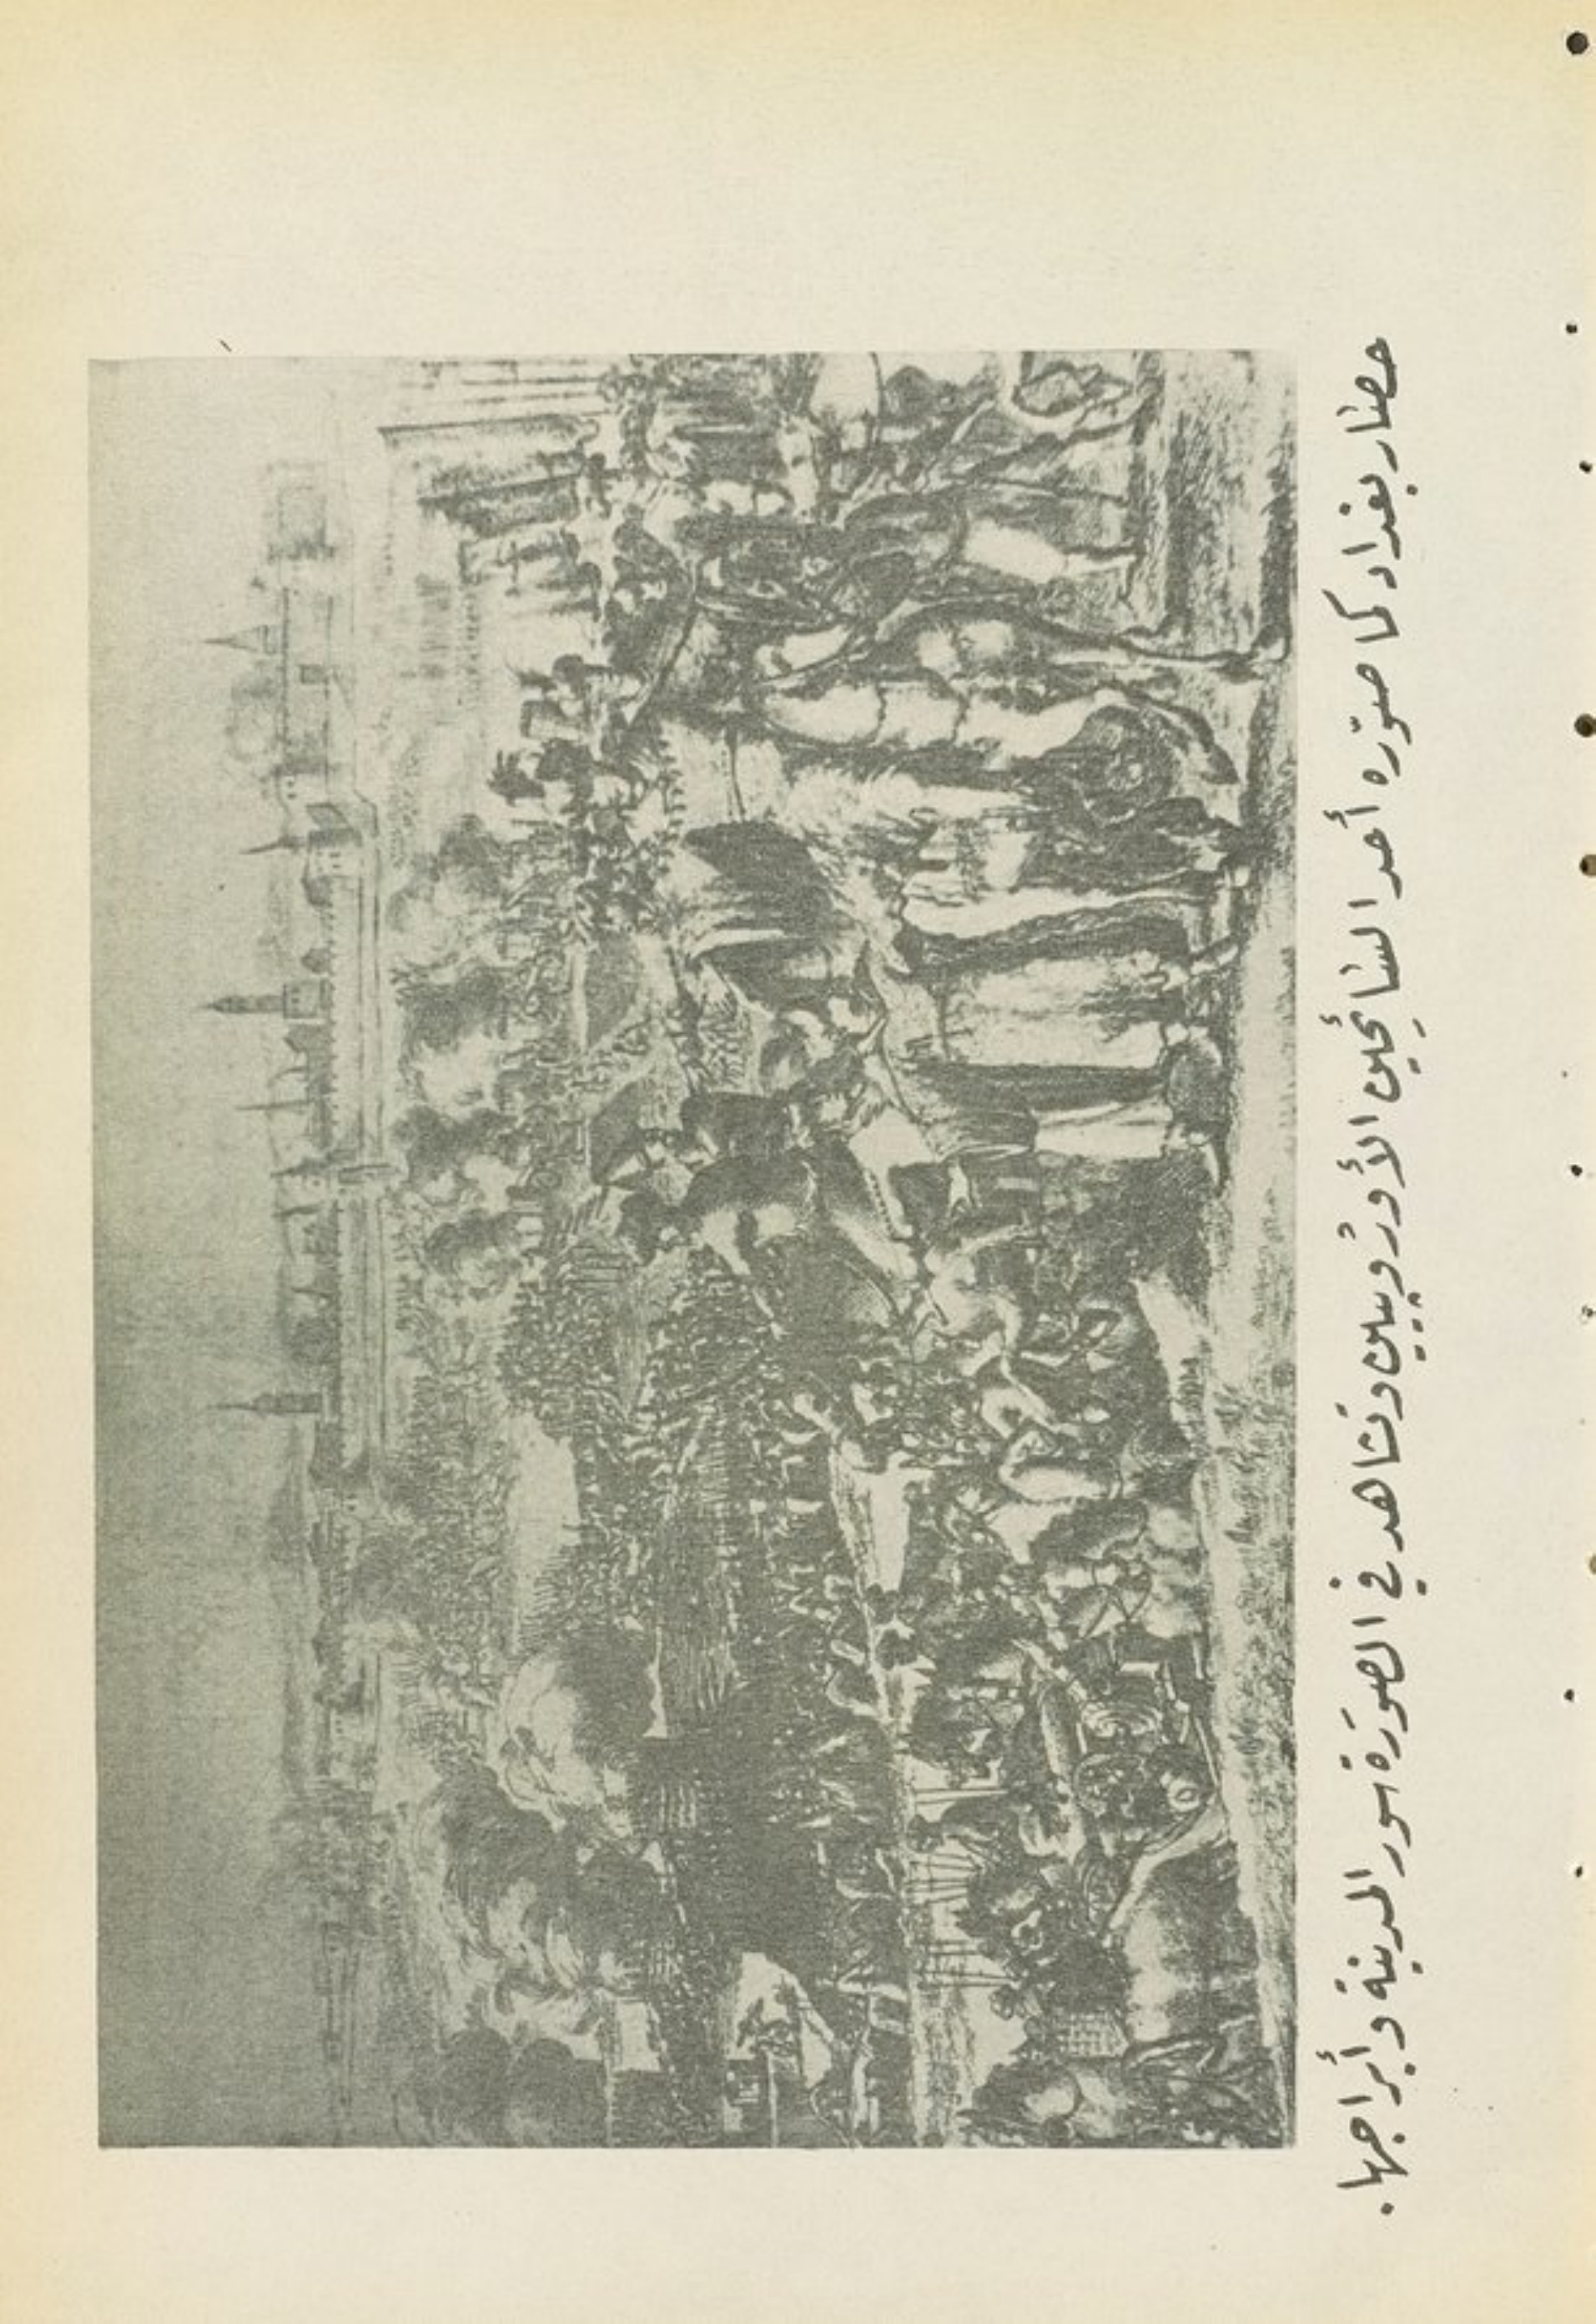 حصار بغداد كما صوّره أحد السائحين الأوروبيين وتشاهد في الصورة سور المدينة وأبراجها.